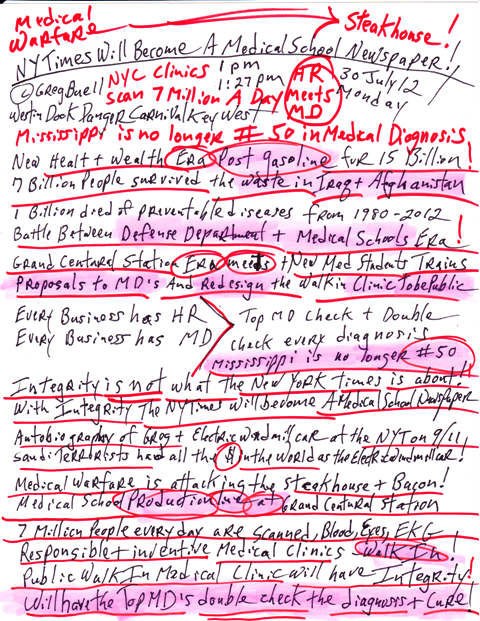 Medical Warfare → Steakhouse!
NYTimes Will Become A Medical School Newspaper!!
© Greg Buell NYC Clinics 1pm HR 30 July 12
Scan 7 Million A Day 1:27pm meets Monday
Westin Dock Panger Carnival Key West MD
Mississippi is no longer #50 in Medcal Diagnosis
New Healt + Wealth Era Post gasoline for 15 Billion!
7 Billion People survived the waste in Iraq + Afghanistan
1 Billion died of preventable diseases from 1980-2012
Battle Between Defense Department + Medical Schools Era!
Grand Centural Station Era meets + New Med Students Trains
Proposals to MD's And Redesign the Walkin Clinic To be Public
Every Business has HR > Top MD check + Double
Every Business has MD check every diagnosis
Mississippi is no longer #50
Integrity is not what the New York times is about!
With Integrity The NYTimes will become A Medical School Newspaper
Autobiography of Greg + Electric Windmill car at the NYT on 9/11,
Saudi Terrorists had all the $ in the World as the Electric windmill car!
Medical Warfare is attacking the Steakhouse + Bacon!
Medical School Production line at Grand Centural Station
7 Million People every day are scanned, Blood, Eyes, EKG
Responsible + inventive Medical Clinics - Walk In!
Public Walk In Medical Clinic will have Integrity!
Will have the Top MD's double check the diagnosis + Cure!